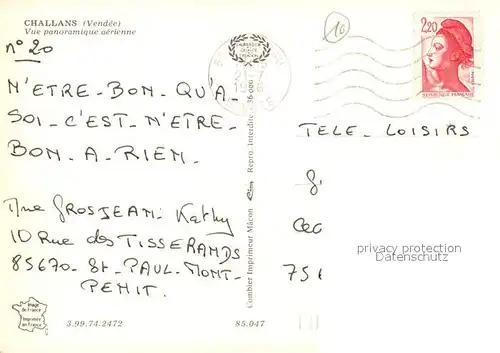 CHALLANS (Vendée)
Vue panoramique aérienne
n° 20
N'ETRE-BON-QU'A-
SOI-C'EST-N'ETRE-
BON-A-RIEN.
Mme GROSJEAN-Kathy
10 Rue des TISSERANDS
85670-St-PAUL-MONT-
PENIT.
Image
de France
Imprimée
en France
3.99.74.2472
85.047
Combier Imprimeur Mâcon Cim Repro. Interdite
10
2,20
REPUBLIQUE FRANÇAISE
TELE-LOISIRS
CEC
756
privacy protection
Datenschutz